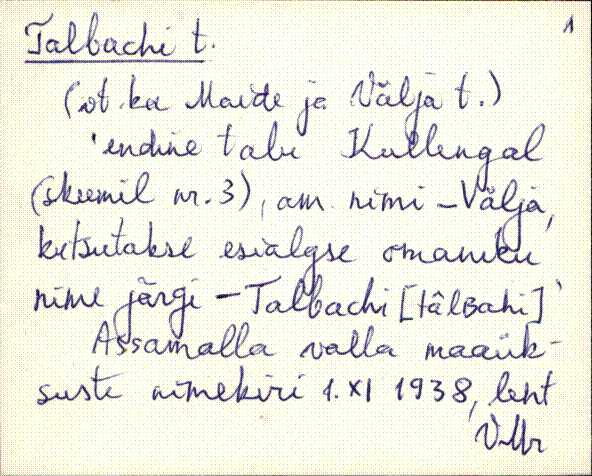 1
Talbachi t.
(vt. ka Maide ja Välja t.)
'endine talu Kullengal
(skeemil nr. 3), am. nimi – Välja,
kutsutakse esialgse omaniku
nime järgi – Talbachi [tâlʙahi]'
Assamalla valla maaük-
suste nimekiri 1.XI 1938, leht
VMr